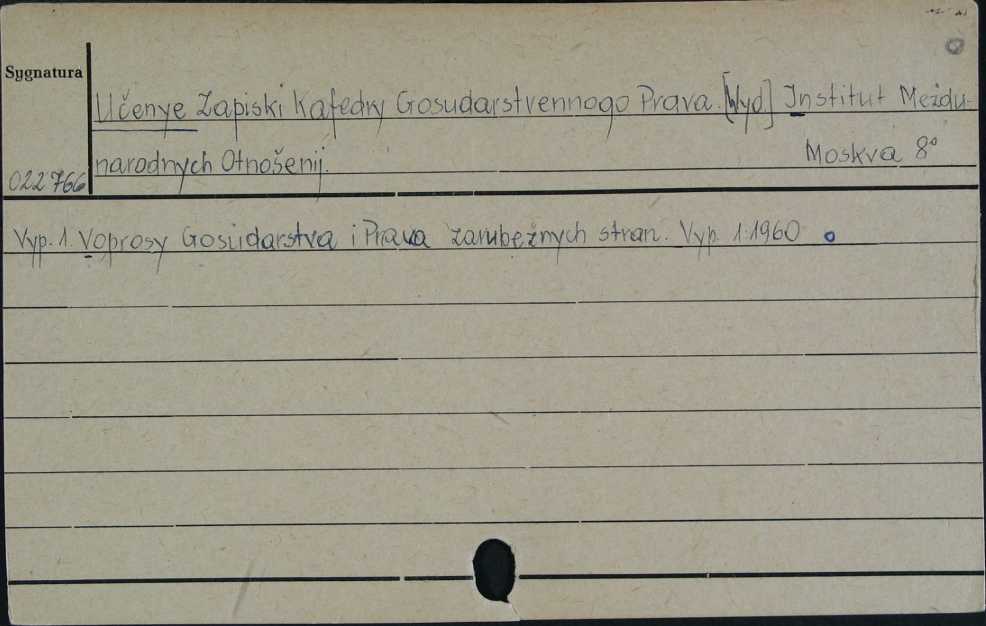 Sygnatura
Učenye Zapiski Kafedry Gosudarstvennogo Prava. [Wyd] Institut Meždu-
narodnych Otnošenij. Moskva 8°
022766
Vyp. 1. Voprosy Gosudarstva i Prava zarubežnych stran. Vyp. 1:1960